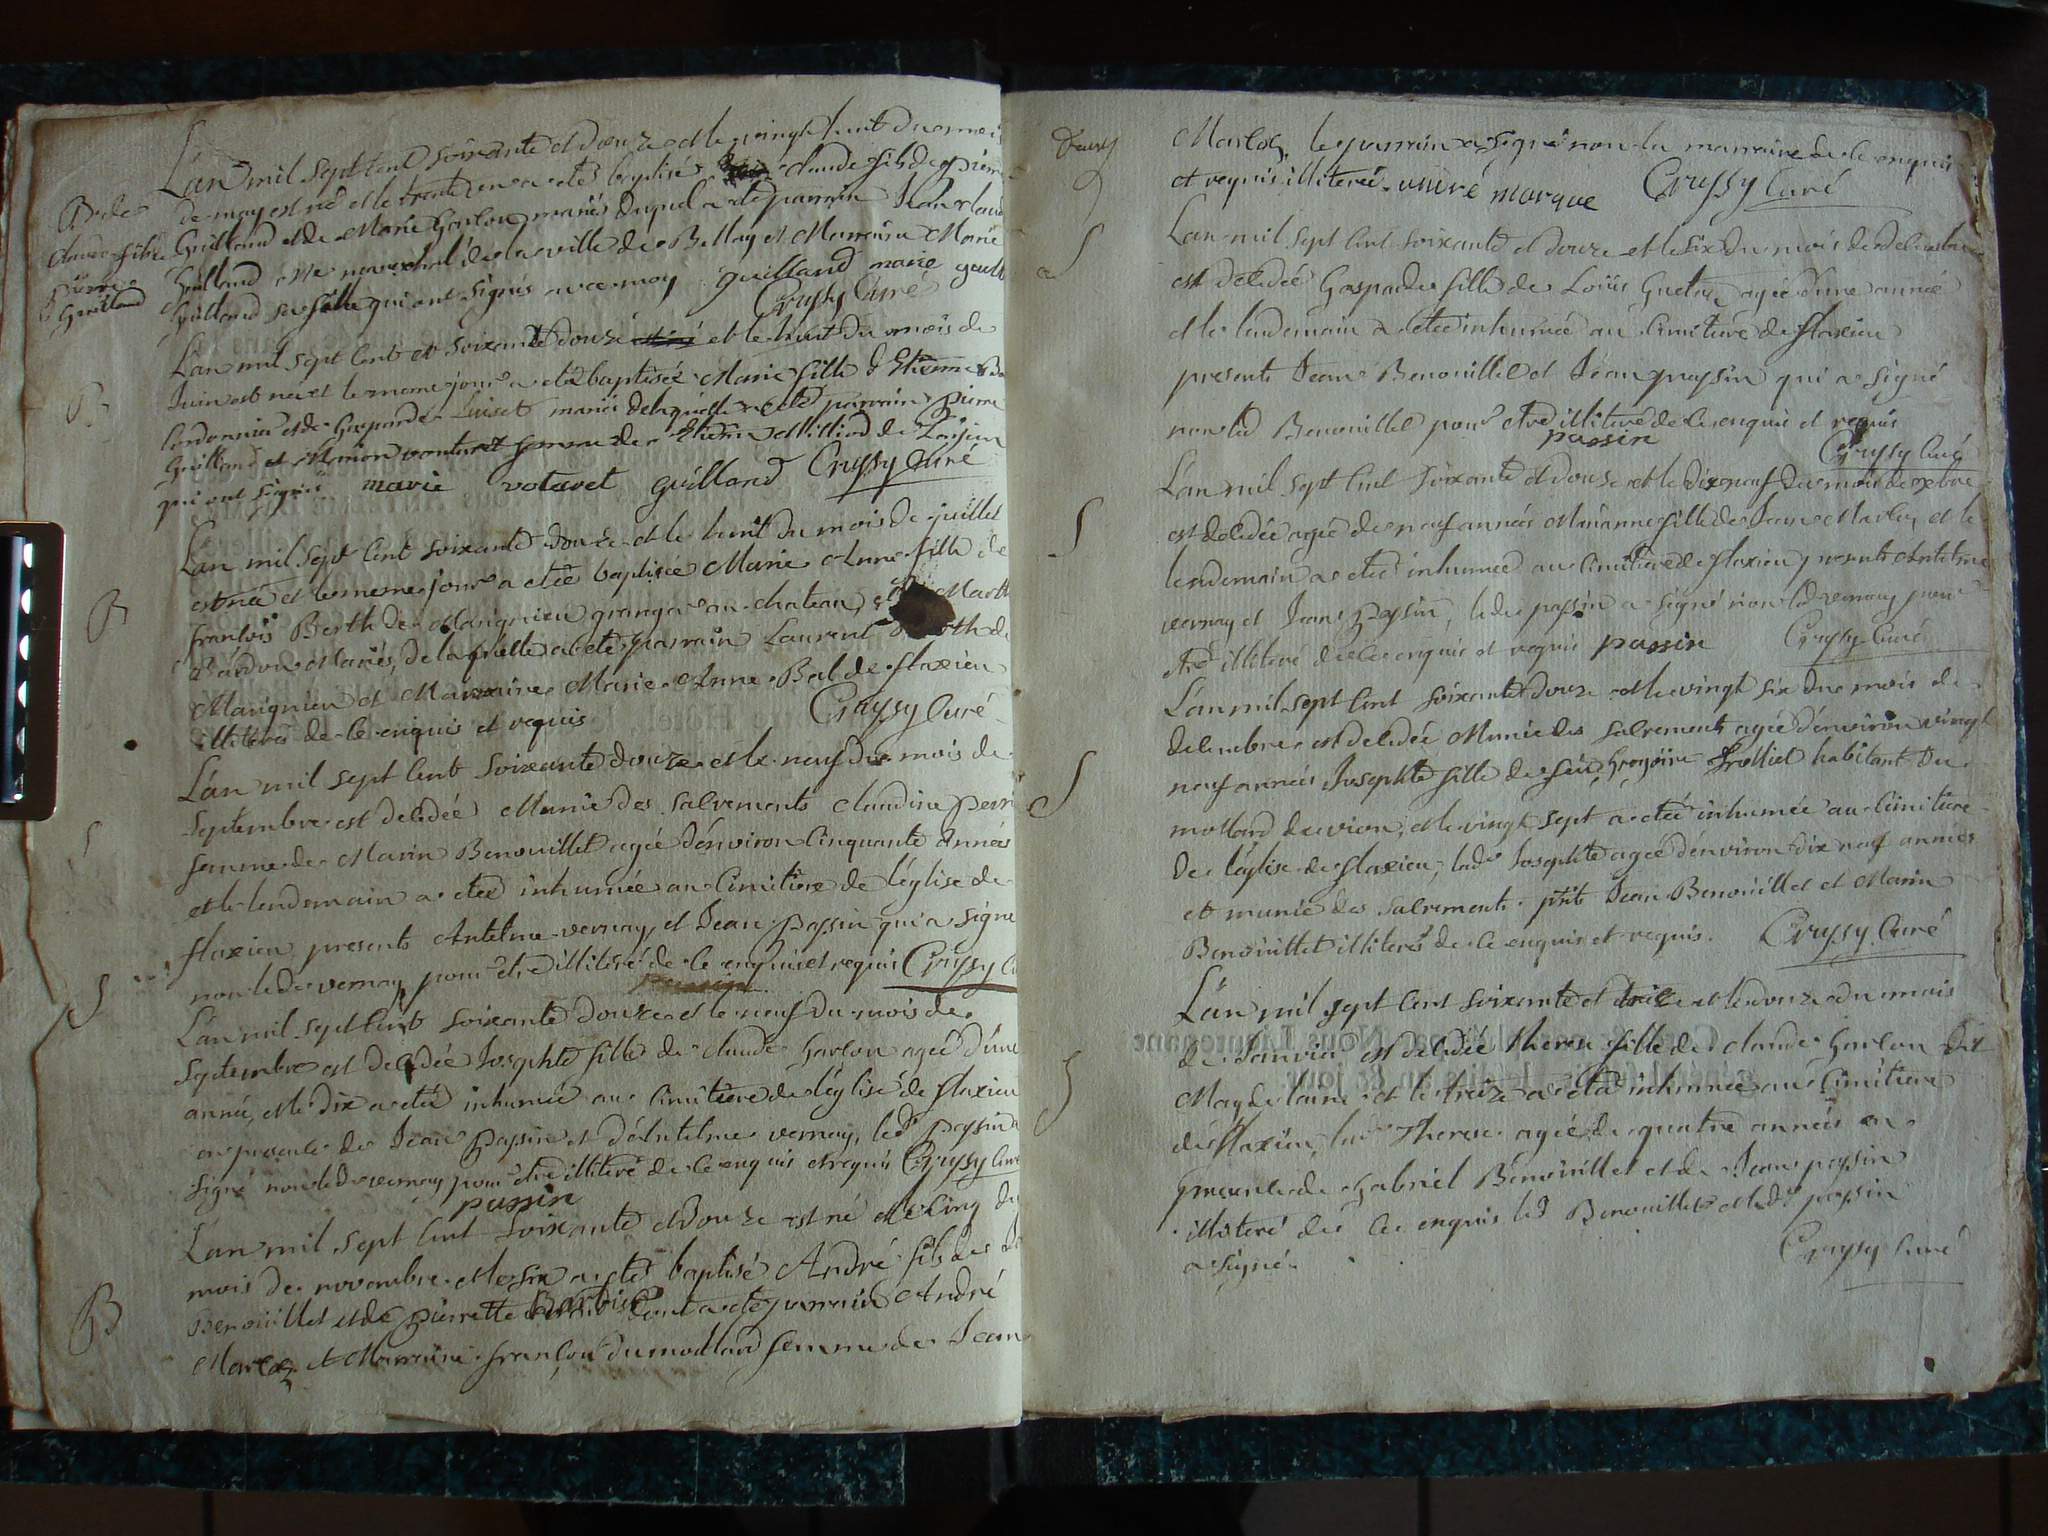 L'an mil sept cent soixante et douze et le vingt huit du mois
de may est né et le trente un a eté baptisé claude fils de pierre
Guilland et de Marie Garlon mariés duquel a eté parrain Jean claude
Guilland me marechal de la ville de Bellay et Marraine Marie
Guilland sa fille qui ont signés avec moy guilland marie
Cruysy Curé
B. de
claude fils de
pierre
Guilland
L'an mil sept cent et soixante douze et le huit du mois de
Juin est né et le meme jour a eté baptisée Marie fille d'Etienne
Cordonnier et de Gasparde Luiset mariés de laquelle a eté parrain pierre
Guilland et Marion femme de Etienne
qui ont signés marie votaret guilland Cruysy Curé
B
L'an mil sept cent soixante douze et le huit du mois de juillet
est née et le meme jour a etée baptisée Marie Anne fille de
francois Berth de Marignieu granger au chateau, et de Marth
mariés, de laquelle a eté parrain Laurent Berth de
Marignieu et Marraine Marie Anne Bal de flaxieu
illiterés de ce enquis et requis Cruysy Curé
B
L'an mil sept cent soixante douze et le neuf du mois de
Septembre est decedée Munie des sacrements claudine
femme de Marin Benouillet agée d'environ cinquante années
et le lendemain a etee inhumée au cimitiere de l'église de
flaxieu presents Antelme vernay, et Jean passin qui a signé
non led vernay pour etre illiteré de ce enquis et requis Cruysy
passin
S
L'an mil sept cent soixante douze et le neuf du mois de
Septembre est decedée Josephte fille de claude Garlon agée d'une
année, et le dix a eté inhumée au cimitiere de l'église de flaxieu
en presence de Jean passin et d'Antelme vernay, led passin a
signé non led vernay pour etre illiteré de ce enquis et requis Cruysy Curé
passin
S
L'an mil sept cent soixante et douze est né et le cinq du
mois de novembre et le six a eté baptisé André fils de
Benouillet et de pierrette Barbier dont a eté parrain André
Marcoz et Marraine françoise dumollard femme de Jean
B
Marcoz le parrain a signé non la marraine de ce enquis
et requis illiterée. André marque Cruysy Curé
L'an mil sept cent soixante et douze et le six du mois de decembre
est decedée Gasparde fille de Loüis agée d'une année
et le lendemain a etée inhumée au cimitiere de flaxieu
presents Jean Benouillet et Jean passin qui a signé
non led Benouillet pour etre illiteré de ce enquis et requis
passin Cruysy Curé
S
L'an mil sept cent soixante et douze et le dixneuf du mois de xbre
est decedée agée de neuf années Marianne fille de Jean Marcoz, et le
lendemain a eté inhumée au cimitiere de flaxieu presents Antelme
vernay et Jean passin, led passin a signé non led vernay pour
etre illiteré de ce enquis et requis passin Cruysy Curé
S
L'an mil sept cent soixante douze et le vingt six du mois de
decembre est decedée Munie des sacrements agée d'environ vingt
neuf années Josephte fille de feu Gregoire habitant du
mollard de vion, et le vingt sept a etée inhumée au cimitiere
de l'église de flaxieu, lad Josephte agée d'environ dix neuf années
et munie des sacrements. pnts Jean Benouillet et Marin
Benouillet illiterés de ce enquis et requis. Cruysy Curé
S
L'an mil sept cent soixante et treize et le douze du mois
de Janvier est decedée therese fille de claude Garlon dit
Magdelaine et le treize a eté inhumée au cimitiere
de flaxieu, lad Therese agée de quatre années en
presence de Gabriel Benouillet et de Jean passin
illiteré de ce enquis led Benouillet et led passin
a signé. Cruysy Curé
S